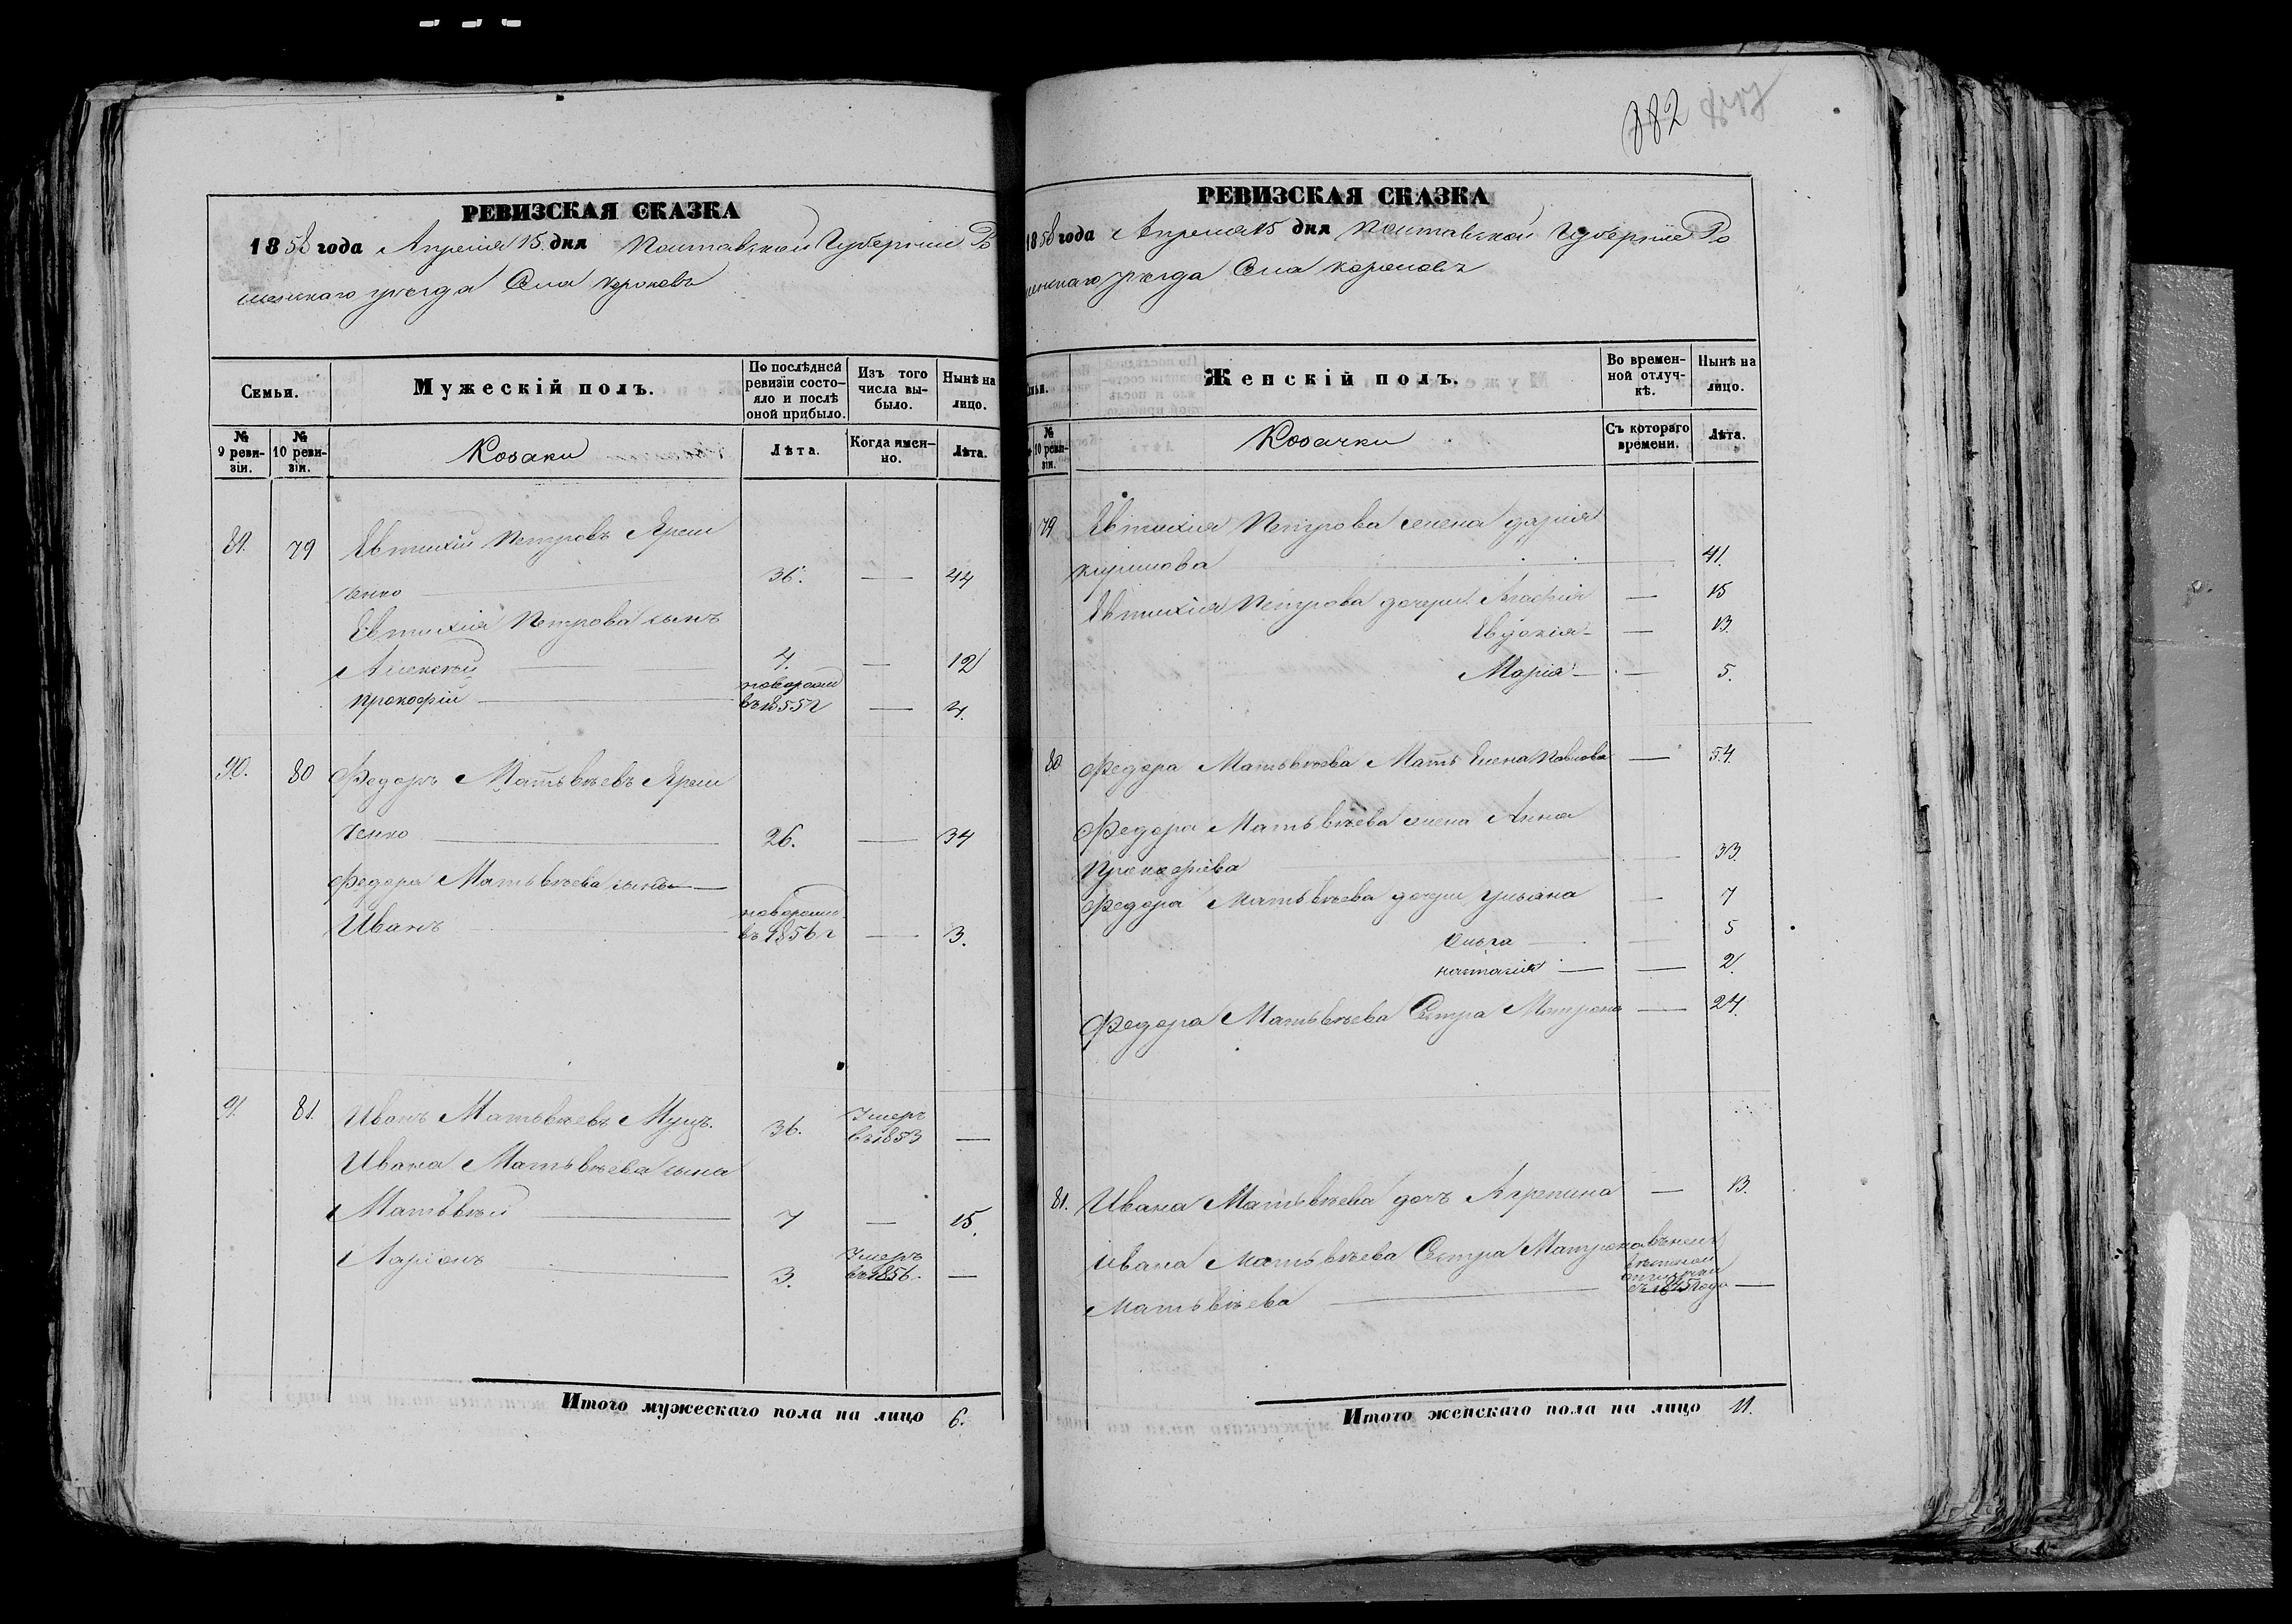 РЕВИЗСКАЯ СКАЗКА
1858 года Апреля 15 дня Полтавской Губерніи Ро
менскаго уезда Села
Семьи.
Мужескій полъ.
По послѣдней ревизіи состояло и послѣ оной прибыло.
Изъ того числа выбыло.
Нынѣ на лицо.
№ 9 ревизіи.
№ 10 ревизіи.
Козаки
Лѣта.
Когда именно.
Лѣта.
89. 79 Евтихій Петровъ Ярем
ченко 36. — 44
Евтихія Петрова сынъ
Алексѣй 4. — 12
Прокофій новорожд
въ 1855 г — 4.
90. 80 Федоръ Матвѣевъ Ярем
ченко 26. — 34
Федора Матвѣева сынъ
Иванъ новорожд
въ 1856 г — 3.
91. 81. Иванъ Матвѣевъ 36. Умеръ
въ 1853 —
Ивана Матвѣева сына
Матвѣй 7 — 15.
Ларіонъ 3. Умеръ
въ 1856 —
Итого мужескаго пола на лицо 6.
882
РЕВИЗСКАЯ СКАЗКА
1858 года Апреля 15 дня Полтавской Губерніи Ро
менскаго уезда Села
Женскій полъ.
Во временной отлучкѣ.
Нынѣ на лицо.
№ 10 ревизіи.
Козачки
Съ котораго времени.
Лѣта.
79 Евтихія Петрова жена Дарія
Кирилова 41.
Евтихія Петрова дочери Агафія — 15
Евдокія — 13.
Марія — 5.
80 Федора Матвѣева Мать Елена Павлова — 54.
Федора Матвѣева жена Анна
Прокофіева — 33.
Федора Матвѣева дочери Ульяна — 7
Ольга — 5
Наталія — 2
Федора Матвѣева Сестра Матрона — 24.
81. Ивана Матвѣева дочь Агрепина — 13.
Ивана Матвѣева Сестра Матрона
Матвѣева —
Итого женскаго пола на лицо 11.